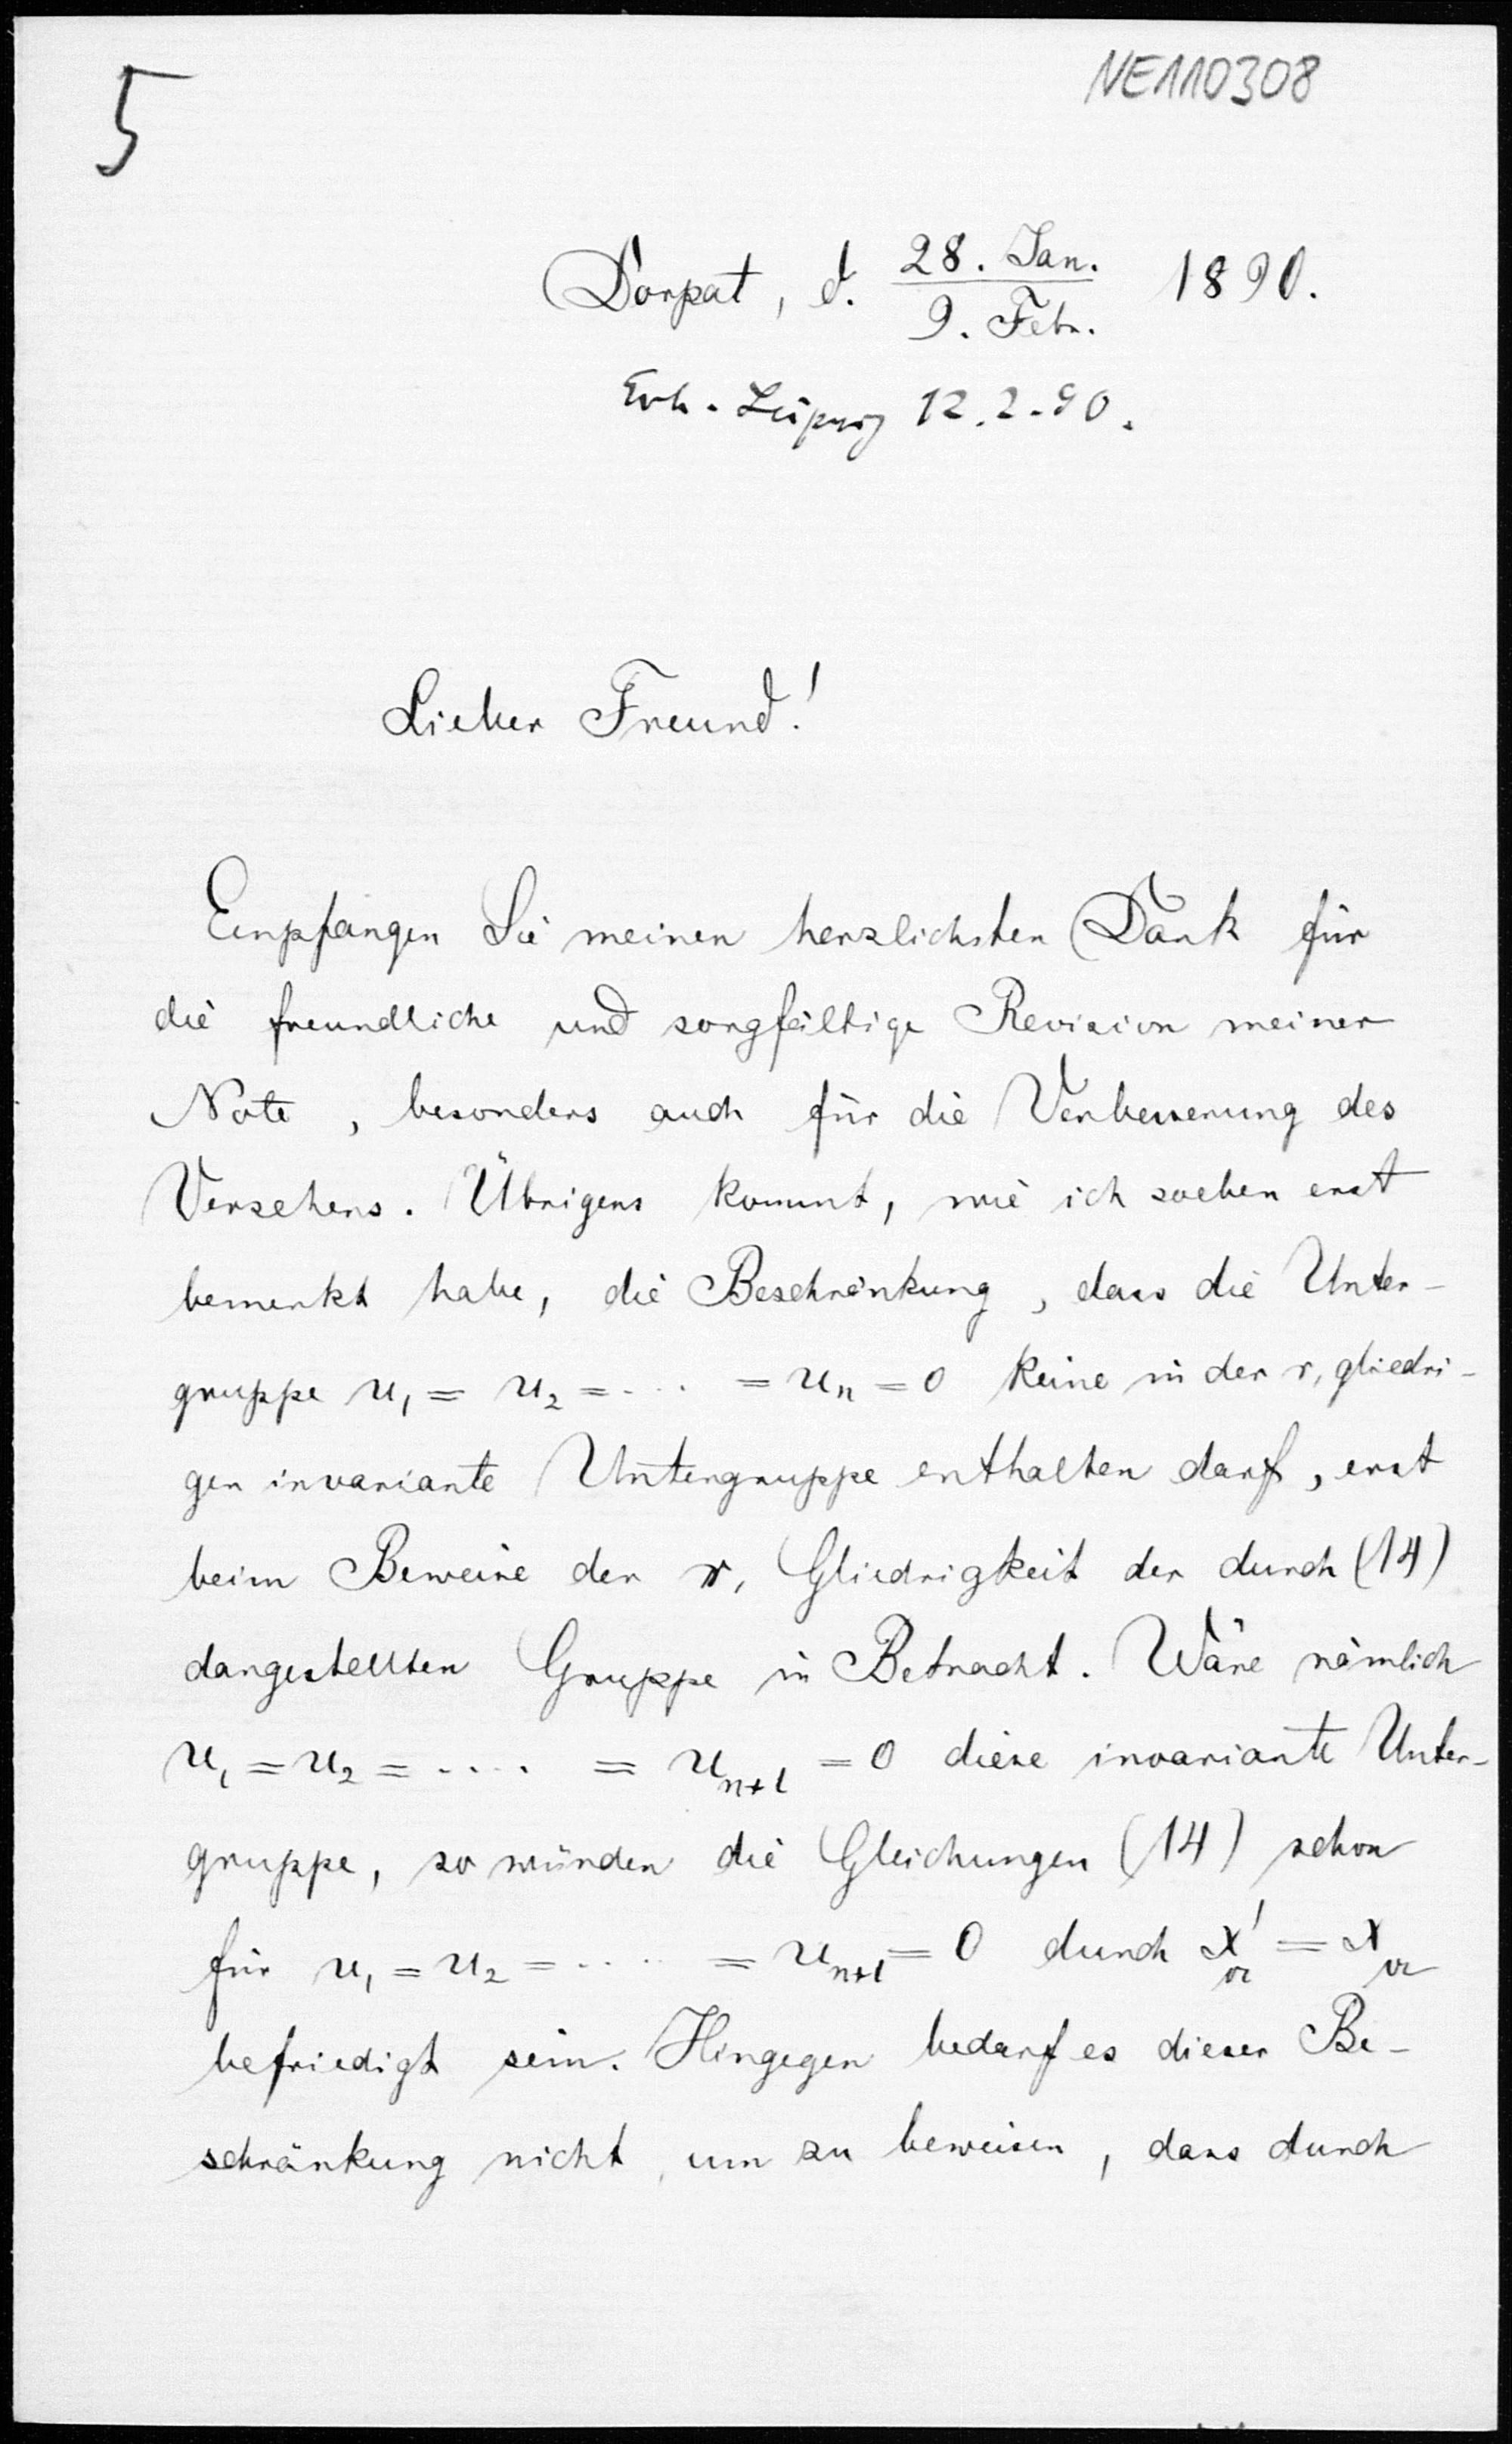 5
NE110308
Dorpat, d. 28. Jan. / 9. Febr. 1890.
Erh. Leipzig 12.2.90.
Lieber Freund!
Empfangen Sie meinen herzlichsten Dank für
die freundliche und sorgfältige Revision meiner
Note, besonders auch für die Verbesserung des
Versehens. Übrigens kommt, wie ich soeben erst
bemerkt habe, die Beschränkung, dass die Unter-
gruppe u₁ = u₂ = .... = uₙ = 0 keine in der r, gliedri-
gen invariante Untergruppe enthalten darf, erst
beim Beweise der r, Gliedrigkeit der durch (14)
dargestellten Gruppe in Betracht. Wäre nämlich
u₁ = u₂ = .... = uₙ₊₁ = 0 diese invariante Unter-
gruppe, so würden die Gleichungen (14) schon
für u₁ = u₂ = .... = uₙ₊₁ = 0 durch x' = x
befriedigt sein. Hingegen bedarf es dieser Be-
schränkung nicht, um zu beweisen, dass durch